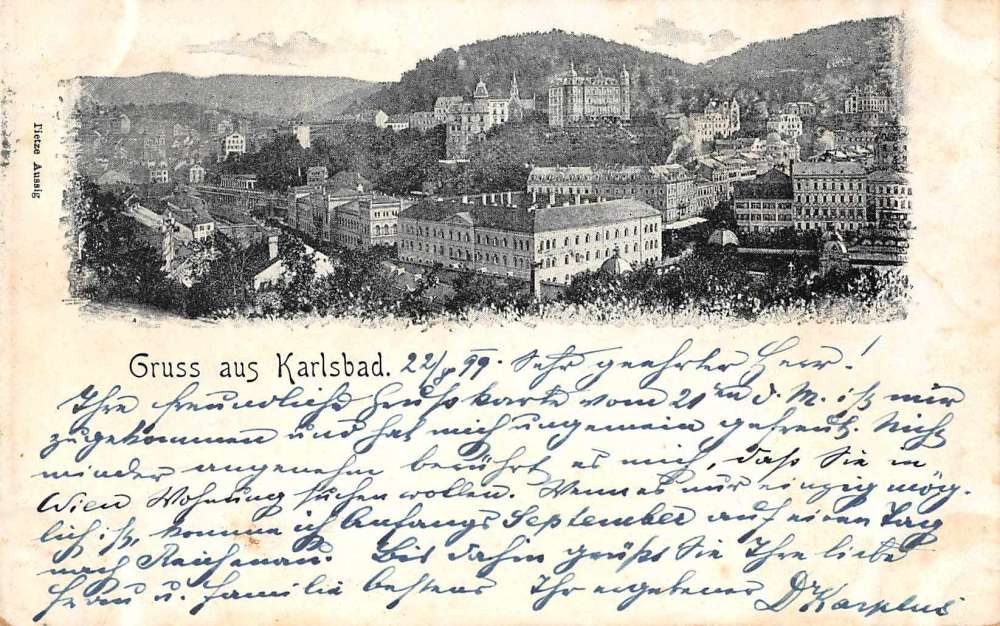 Tietze Aussig
Gruss aus Karlsbad. 22/8 99. Sehr geehrter Herr!
Ihre freundliche Grußkarte vom 21ten d. M. ist mir
zugekommen und hat mich ungemein gefreut. Nicht
minder angenehm berührt es mich, daß Sie in
Wien Wohnung suchen wollen. Wenn es nur einzig mög-
lich ist, komme ich Anfangs September auf einen Tag
nach Reichenau. Bis dahin grüßt Sie Ihre liebe
Frau u. Familie bestens Ihr ergebener Dr Karplus